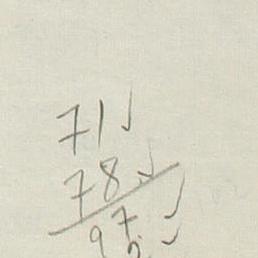 71 ✓
78 ✓
97 ✓
2 ✓